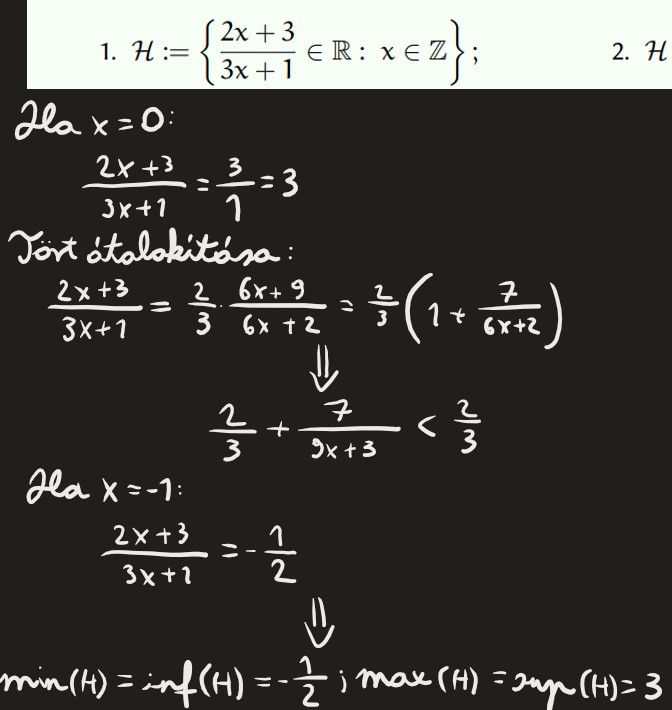 1. H := { (2x + 3)/(3x + 1) ∈ ℝ : x ∈ ℤ } ; 2. H
Ha x = 0:
(2x + 3)/(3x + 1) = 3/1 = 3
Tört átalakítása:
(2x + 3)/(3x + 1) = 2/3 · (6x + 9)/(6x + 2) = 2/3 (1 + 7/(6x + 2))
⇓
2/3 + 7/(9x + 3) < 2/3
Ha x = -1:
(2x + 3)/(3x + 1) = - 1/2
⇓
min(H) = inf(H) = - 1/2 ; max(H) = sup(H) = 3